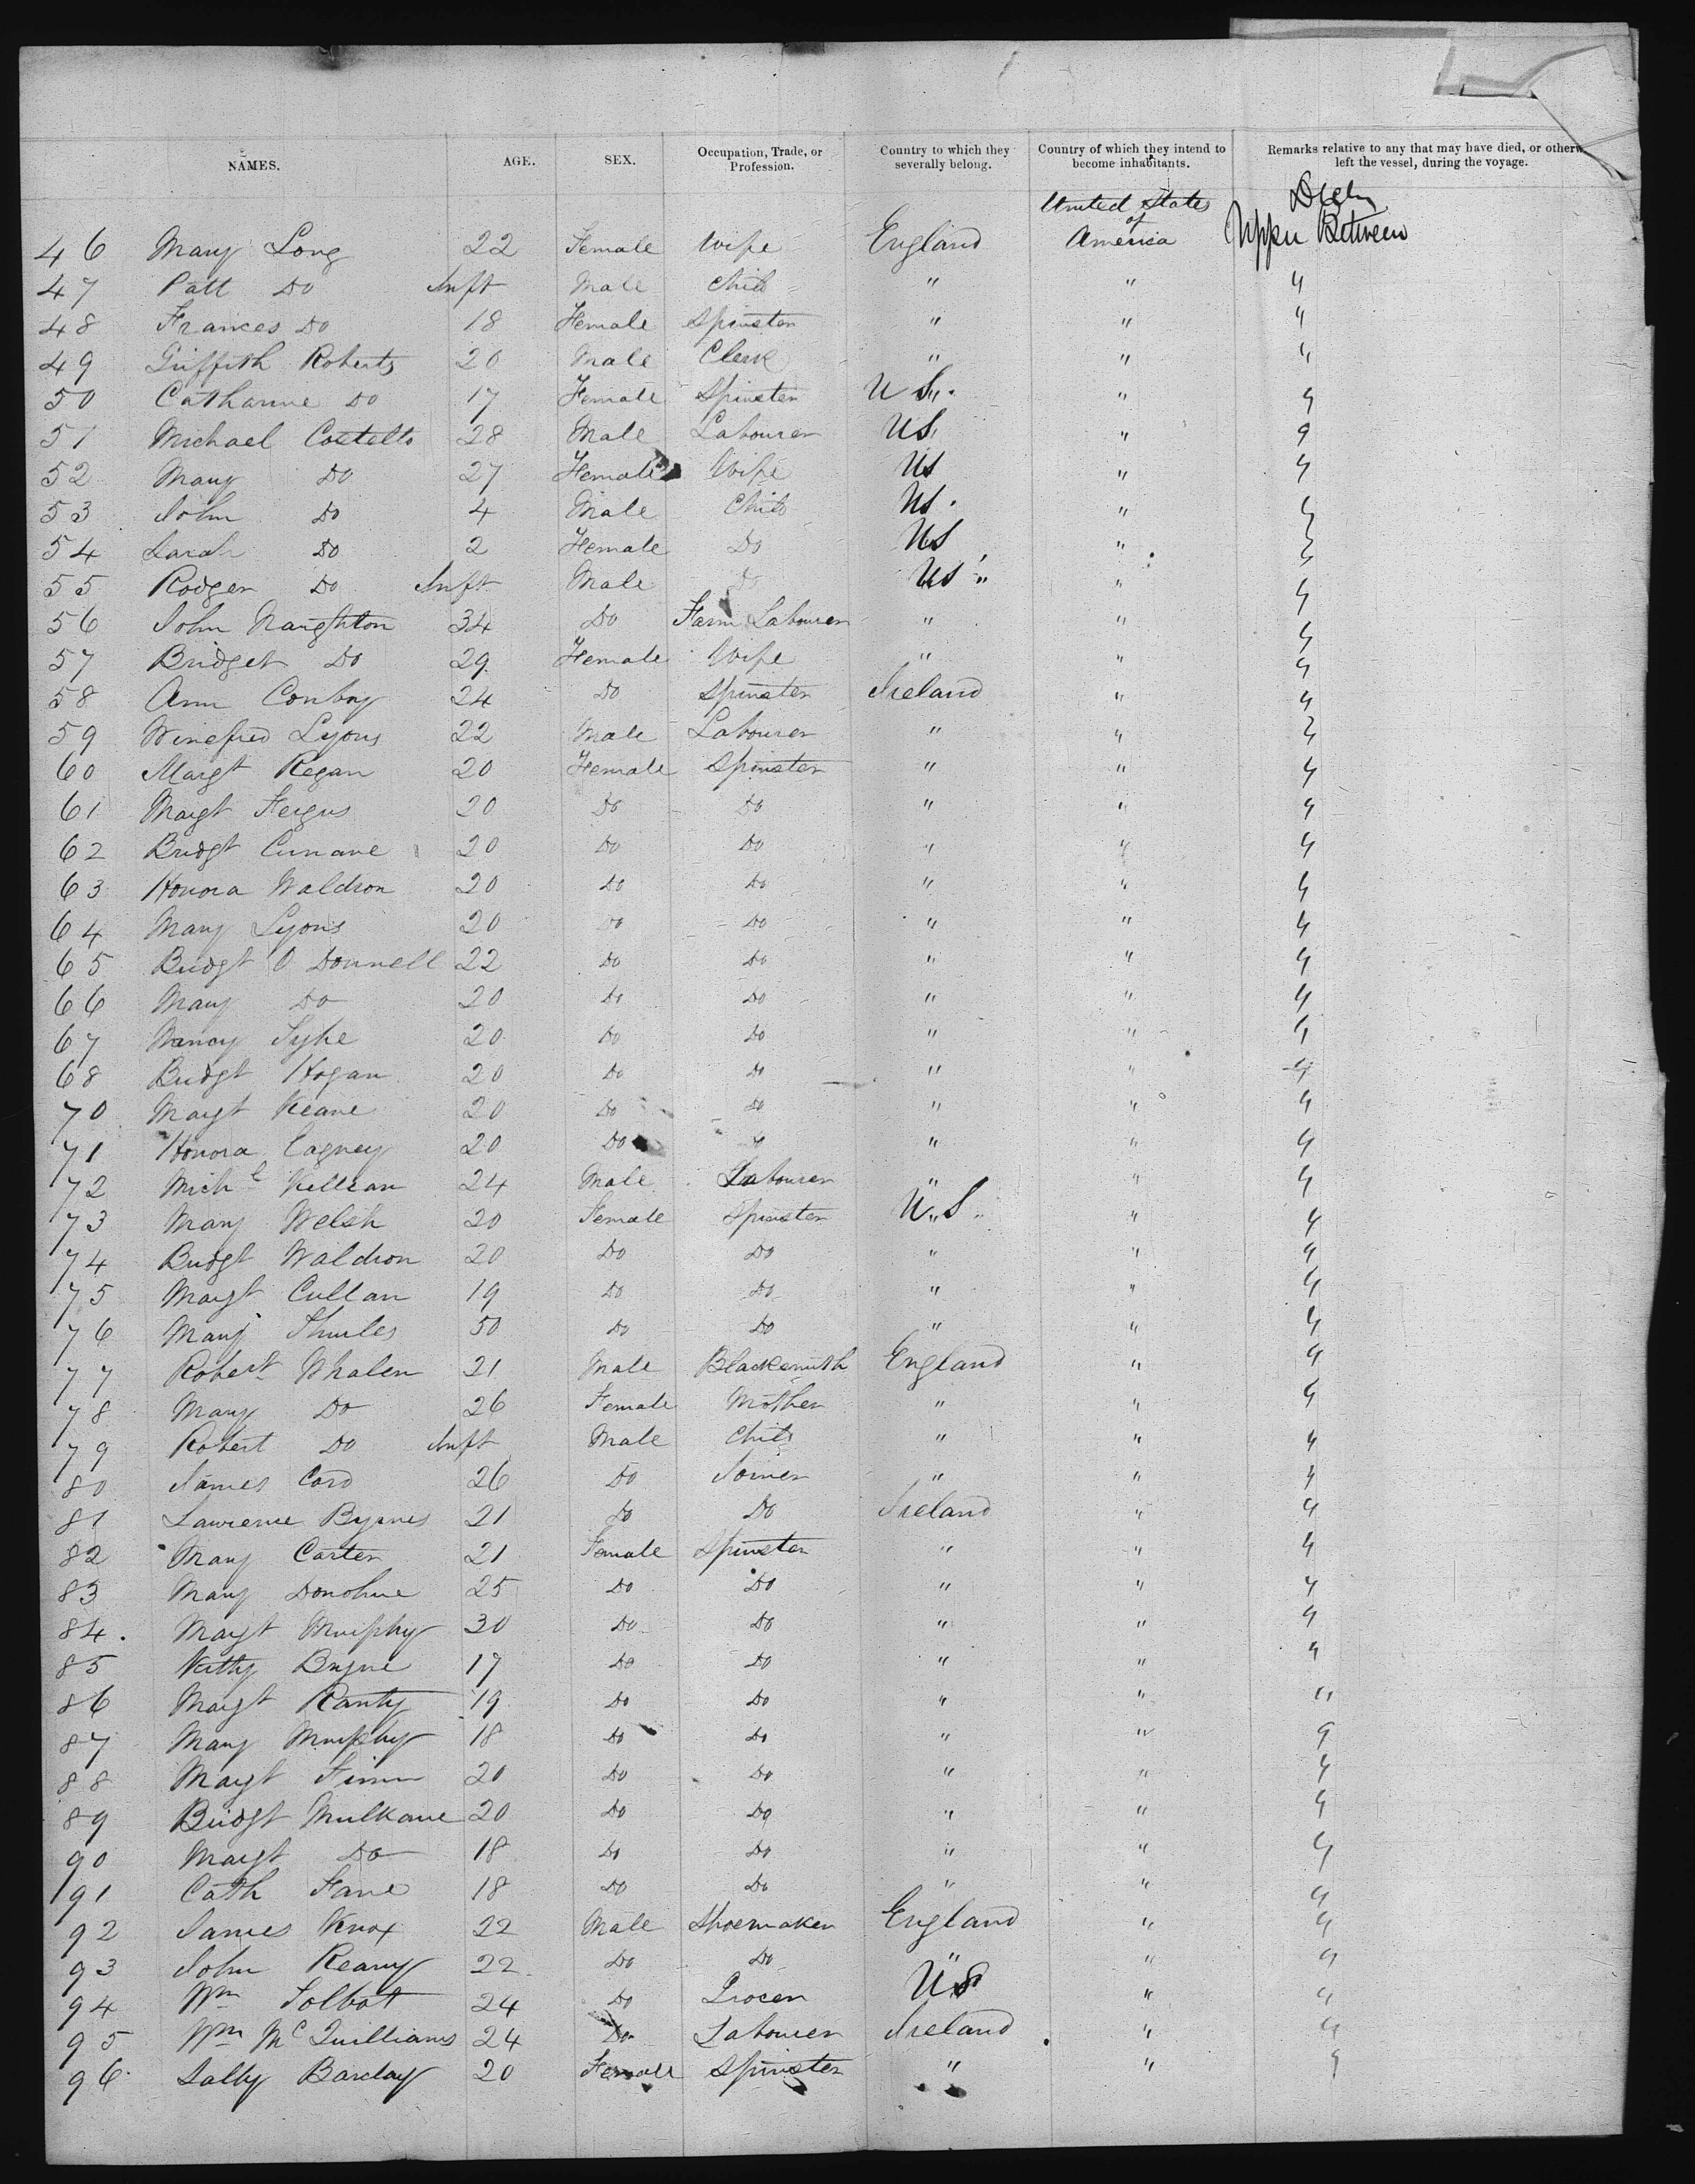 NAMES. AGE. SEX. Occupation, Trade, or Profession. Country to which they severally belong. Country of which they intend to become inhabitants. Remarks relative to any that may have died, or otherw left the vessel, during the voyage.
United States
46 Mary Long 22 Female Wife England of America Upper Between
47 Patt Do Inft Male Child " " "
48 Frances Do 18 Female Spinster " " "
49 Griffith Roberts 20 Male Clerk " " "
50 Catharine Do 17 Female Spinster US " "
51 Michael Costello 28 Male Labourer US " "
52 Mary Do 27 Female Wife US " "
53 John Do 4 Male Child US " "
54 Sarah Do 2 Female Do US " "
55 Rodger Do Inft Male Do US " " "
56 John Naughton 34 Do Farm Labourer " " "
57 Bridget Do 29 Female Wife " " "
58 Ann Conboy 24 Do Spinster Ireland " "
59 Winefred Lyons 22 Male Labourer " " "
60 Margt Regan 20 Female Spinster " " "
61 Margt Fergus 20 Do Do " " "
62 Bridgt Cunane 20 Do Do " " "
63 Honora Waldron 20 Do Do " " "
64 Mary Lyons 20 Do Do " " "
65 Bridgt O Donnell 22 Do Do " " "
66 Mary Do 20 Do Do " " "
67 Nancy 20 Do Do " " "
68 Bridgt Hogan 20 Do Do " " "
70 Margt Keane 20 Do Do " " "
71 Honora Cagney 20 Do " " " "
72 Michl Killean 24 Male Labourer " " "
73 Mary Welsh 20 Female Spinster U.S " "
74 Bridgt Waldron 20 Do Do " " "
75 Margt Cullan 19 Do Do " " "
76 Mary Thurles 50 Do Do " " "
77 Robert Whalen 21 Male Blacksmith England " "
78 Mary Do 26 Female Mother " " "
79 Robert Do Inft Male Child " " "
80 James Cord 26 Do Joiner " " "
81 Lawrence Byrnes 21 Do Do Ireland " "
82 Mary Carter 21 Female Spinster " " "
83 Mary Donohue 25 Do Do " " "
84. Margt Murphy 30 Do Do " " "
85 Kitty Byrne 17 Do Do " " "
86 Margt Ranty 19 Do Do " " "
87 Mary Murphy 18 Do Do " " "
88 Margt Finn 20 Do Do " " "
89 Bridgt Mulkane 20 Do Do " " "
90 Margt Do 18 Do Do " " "
91 Cath Fane 18 Do Do " " "
92 James Knox 22 Male Shoemaker England " "
93 John Reany 22 Do Do " " "
94 Wm Tolbot 24 Do US " "
95 Wm McQuillians 24 Do Labourer Ireland " "
96 Sally Barclay 20 Female Spinster " " "